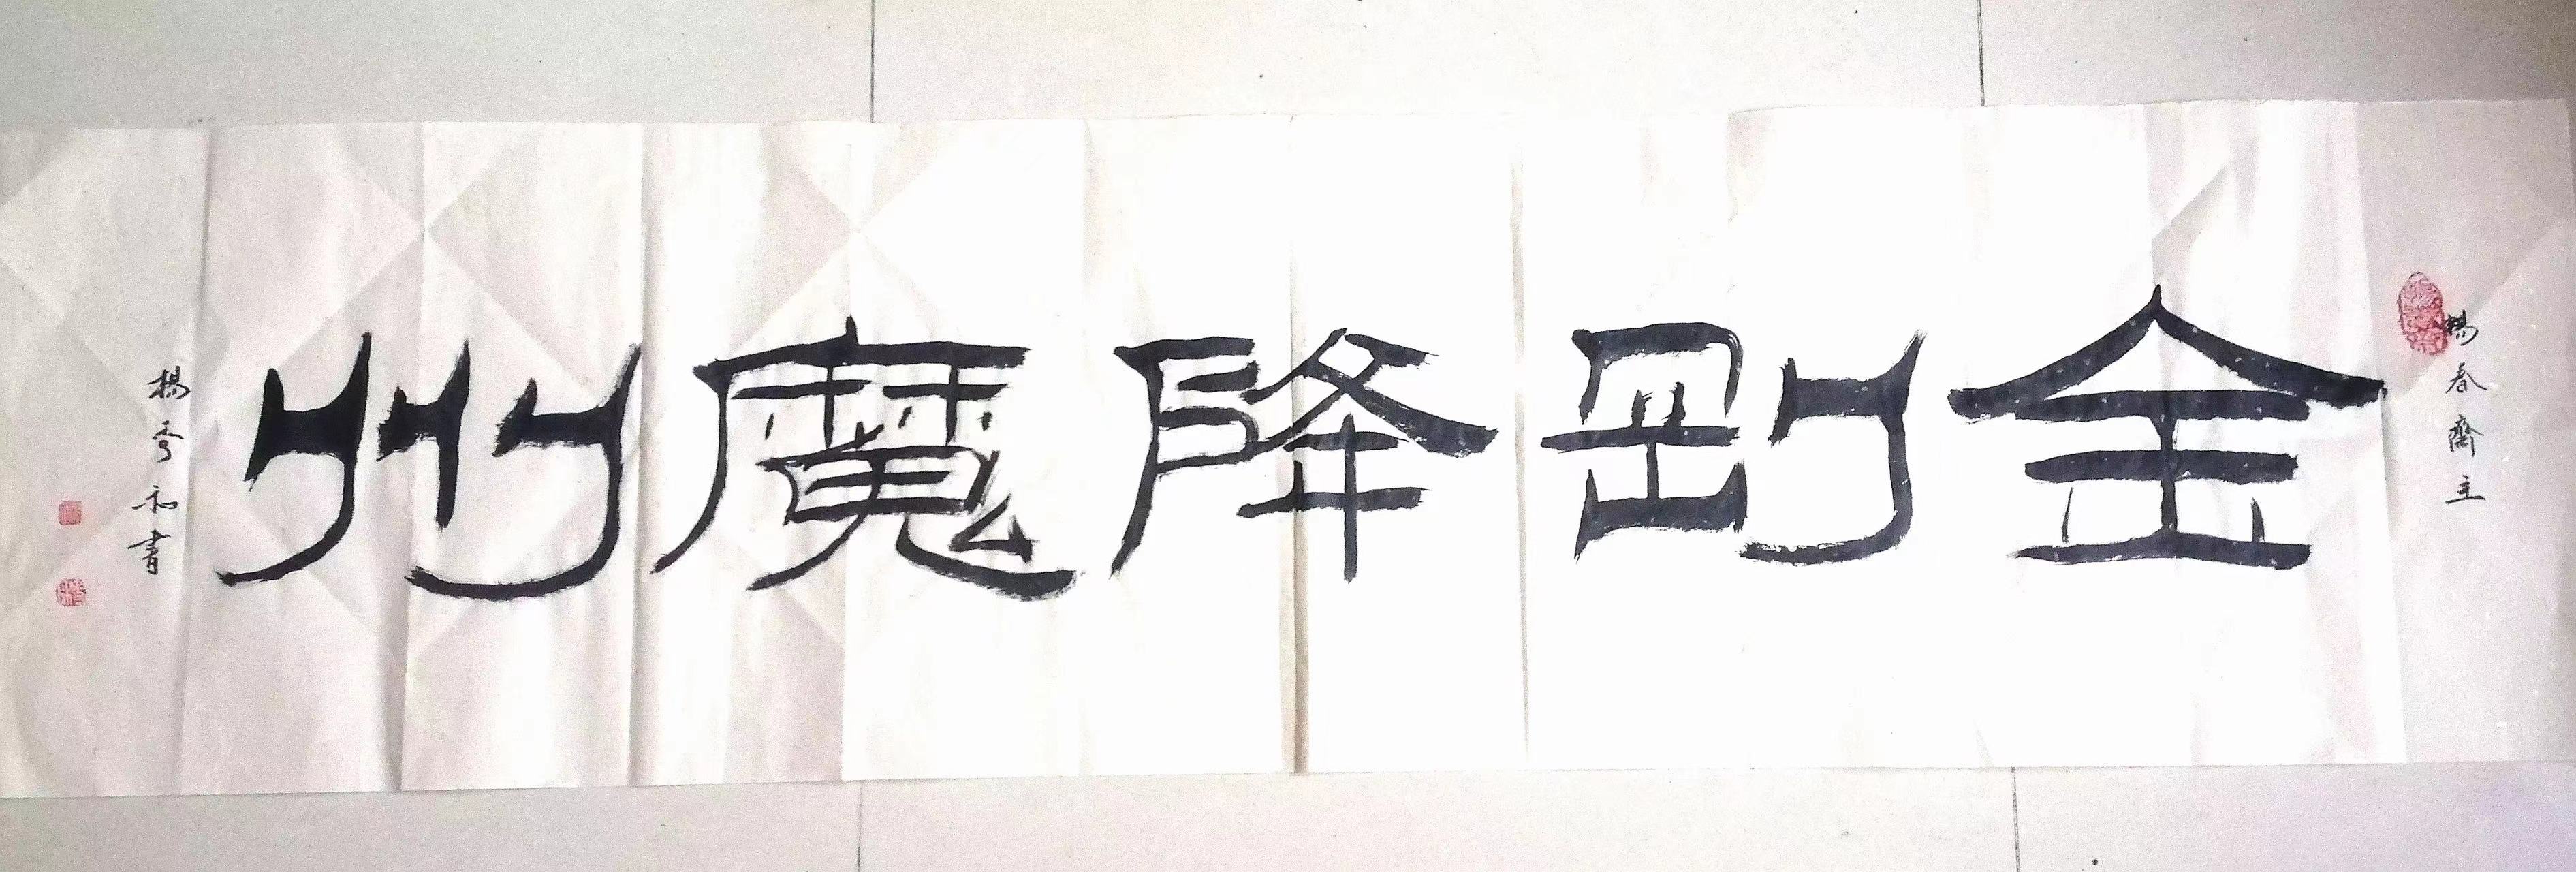 楊春齋主
金剛降魔州
楊秀和書